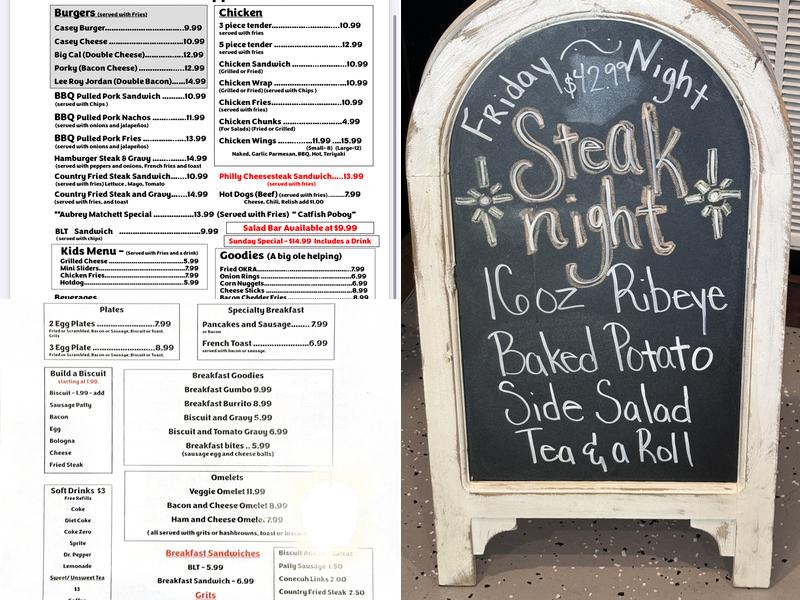 Burgers (served with Fries)
Casey Burger........................9.99
Casey Cheese ....................10.99
Big Cal (Double Cheese)..............12.99
Porky (Bacon Cheese) ...............12.99
Lee Roy Jordan (Double Bacon).....14.99
BBQ Pulled Pork Sandwich .........10.99
(served with Chips )
BBQ Pulled Pork Nachos ..........11.99
(served with onions and jalapeños)
BBQ Pulled Pork Fries............13.99
(served with onions and jalapeños)
Hamburger Steak & Gravy ............14.99
(served with peppers and onions, French fries and toast
Country Fried Steak Sandwich.........10.99
(served with fries) Lettuce , Mayo, Tomato
Country Fried Steak and Gravy.......14.99
(served with fries, and toast
Chicken
3 piece tender..........................10.99
served with fries
5 piece tender..........................12.99
served with fries
Chicken Sandwich ...................10.99
(Grilled or Fried)
Chicken Wrap ........................10.99
(Grilled or Fried) (served with Chips )
Chicken Fries..........................10.99
(served with fries)
Chicken Chunks .......................4.99
(For Salads) (Fried or Grilled)
Chicken Wings ..................11.99 ....15.99
(Small- 8) (Large-12)
Naked, Garlic Parmesan, BBQ, Hot, Teriyaki
Philly Cheesesteak Sandwich.....13.99
(served with fries)
Hot Dogs (Beef) (served with fries)............7.99
Cheese, Chili, Relish add $1.00
**Aubrey Matchett Special ...............13.99 (Served with Fries) " Catfish Poboy"
BLT Sandwich ...........................9.99
( served with chips)
Salad Bar Available at $9.99
Sunday Special - $14.99 Includes a Drink
Kids Menu - (Served with Fries and a drink)
Grilled Cheese .............................5.99
Mini Sliders.................................7.99
Chicken Fries................................7.99
Hotdog.......................................5.99
Beverages
Goodies (A big ole helping)
Fried OKRA.................................7.99
Onion Rings ................................6.99
Corn Nuggets...............................6.99
Cheese Sticks ..............................8.99
Bacon Chedder Fries ......................8.99
Plates
2 Egg Plates ...................7.99
Fried or Scrambled, Bacon or Sausage, Biscuit or Toast,
Grits
3 Egg Plate .....................8.99
Fried or Scrambled, Bacon or Sausage, Biscuit or Toast,
Specialty Breakfast
Pancakes and Sausage...... 7.99
or Bacon
French Toast....................6.99
served with bacon or sausage.
Build a Biscuit
starting at 1.99.
Biscuit - 1.99 - add
Sausage Patty
Bacon
Egg
Bologna
Cheese
Fried Steak
Breakfast Goodies
Breakfast Gumbo 9.99
Breakfast Burrito 8.99
Biscuit and Gravy 5.99
Biscuit and Tomato Gravy 6.99
Breakfast bites .. 5.99
(sausage egg and cheese balls)
Omelets
Veggie Omelet 11.99
Bacon and Cheese Omelet 8.99
Ham and Cheese Omelet 7.99
( all served with grits or hashbrowns, toast or
Soft Drinks $3
Free Refills
Coke
Diet Coke
Coke Zero
Sprite
Dr. Pepper
Lemonade
Sweet/ Unsweet Tea
$3
Coffee
Breakfast Sandwiches
BLT - 5.99
Breakfast Sandwich - 6.99
Grits
Biscuit
Patty Sausage 1.50
Conecuh Links 2.00
Country Fried Steak 2.50
Friday Night
$42.99
Steak
night
16oz Ribeye
Baked Potato
Side Salad
Tea & a Roll